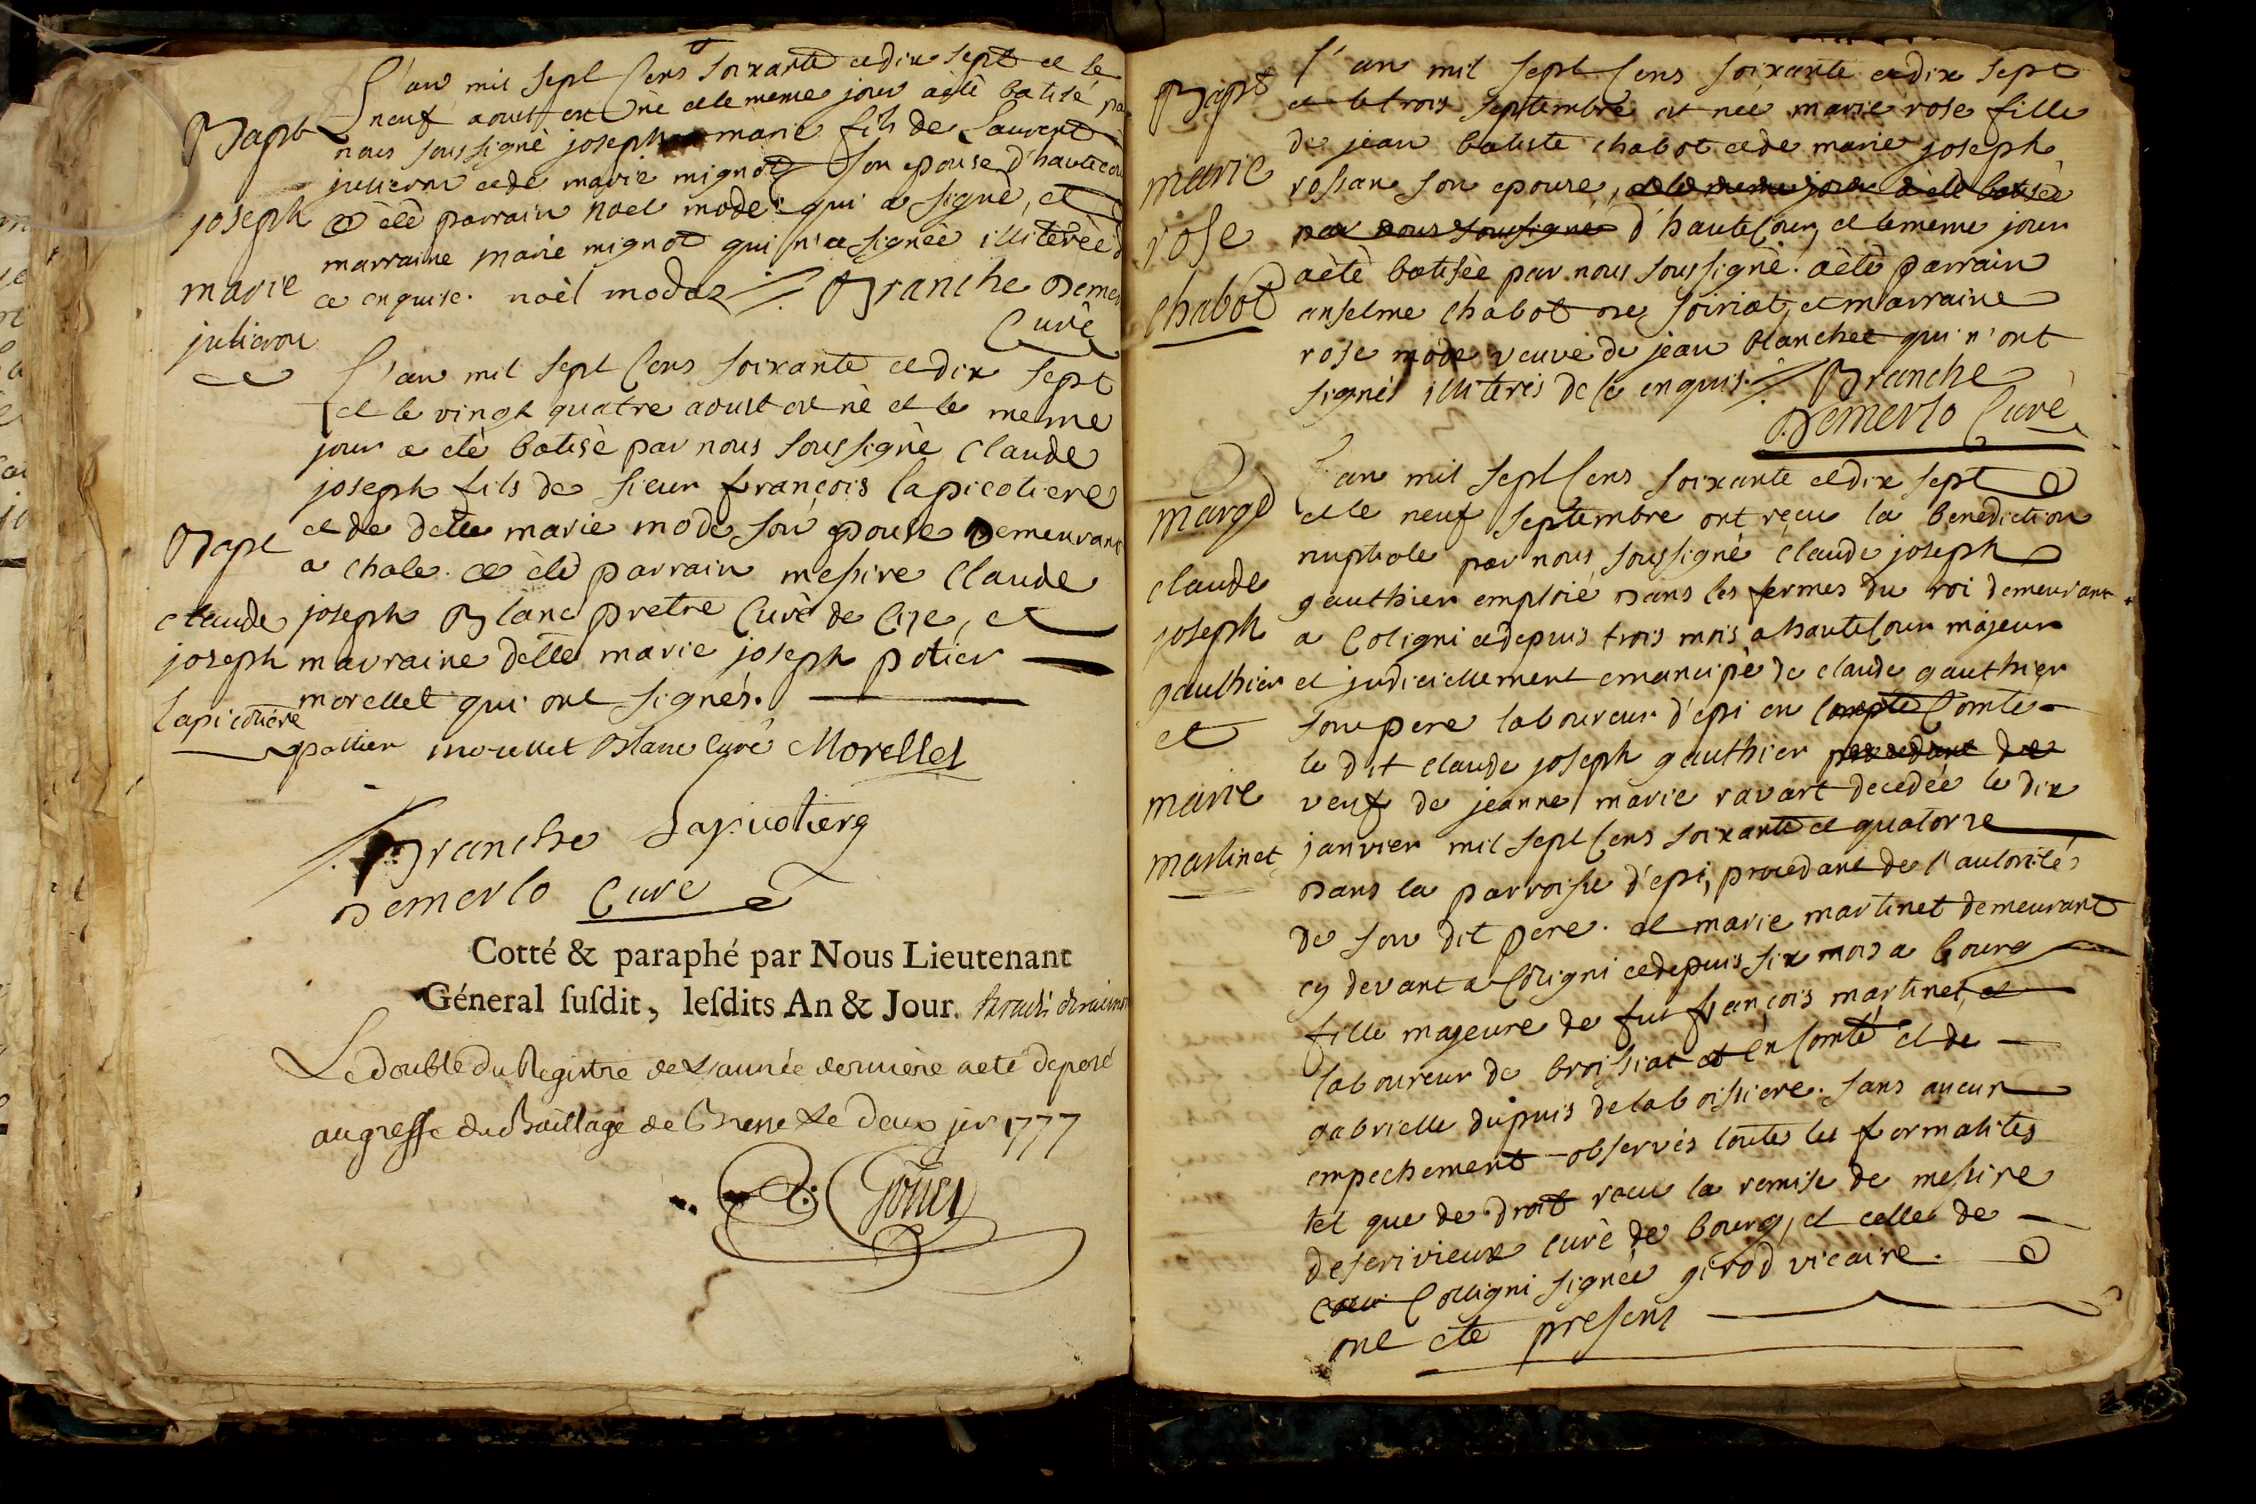 Bapt
joseph
marie
julieron
L'an mil sept Cens soixante et dix sept et le
neuf aoust est né et le meme jour a été batisé par
nous soussigné joseph marie fils de Laurent
julieron et de marie mignot son epouse d'hautecour
a été parrain noel mode qui a signé, et
marraine marie mignot qui n'a signée illiterée
ce enquise. noël modaz Branche Demerlo
Curé
Bapt
claude
joseph
lapicotiere
L'an mil sept Cens soixante et dix sept
et le vingt quatre aoust est né et le meme
jour a été batisé par nous soussigné Claude
joseph fils de sieur françois lapicotiere
et de delle marie mode son epouse Demeurant
a chale. a été parrain messire Claude
joseph Blanc pretre Curé de Cize, et
marraine delle marie joseph potier
morellet qui ont signés.
pottier morellet Blanc Curé Morellet
Branche Lapicotierez
Demerlo Curé
Cotté & paraphé par Nous Lieutenant
Géneral susdit, lesdits An & Jour.
Le double du Registre de L'année derniere a eté deposé
au greffe du Bailliage de Bresse Le deux jer 1777
Bapt
marie
rose
Chabot
L'an mil sept Cens soixante et dix sept
et le trois septembre est neé marie rose fille
de jean batiste chabot et de marie joseph
rossan son epouse, et le meme jour a été batisée
par nous soussigné d'hauteCour, et le meme jour
a été batisée par nous soussigné. a été parrain
anselme Chabot de soiriat, et marraine
rose mode veuve de jean blanchet qui n'ont
signés illiterés de ce enquis. Branche
Demerlo Curé
Marge
claude
joseph
gauthier
et
marie
martinet
L'an mil sept Cens soixante et dix sept
et le neuf septembre ont reçu la benediction
nuptiale par nous soussigné Claude joseph
gauthier emploié dans les fermes du roi demeurant
a Coligni et depuis trois mois a hauteCour majeur
et judiciellement emancipé de claude gauthier
son pere laboureur d'epi en Compte Comté
le dit claude joseph gauthier procedant de
veuf de jeanne marie ravart decedée le dix
janvier mil sept Cens soixante et quatorze
dans la parroisse d'epi, procedant de l'autorité
de son dit pere. et marie martinet demeurant
cy devant a Coligni et depuis six mois a bourg
fille majeure de fut françois martinet, et
laboureur de broissiat et en Comté et de
gabrielle dupuis de la boissiere. sans aucun
empechement observés toutes les formalités
tel que de droit reçu la remise de messire
descrivieux curé de bourg, et celle de
Colligni signée girod vicaire.
ont eté presens